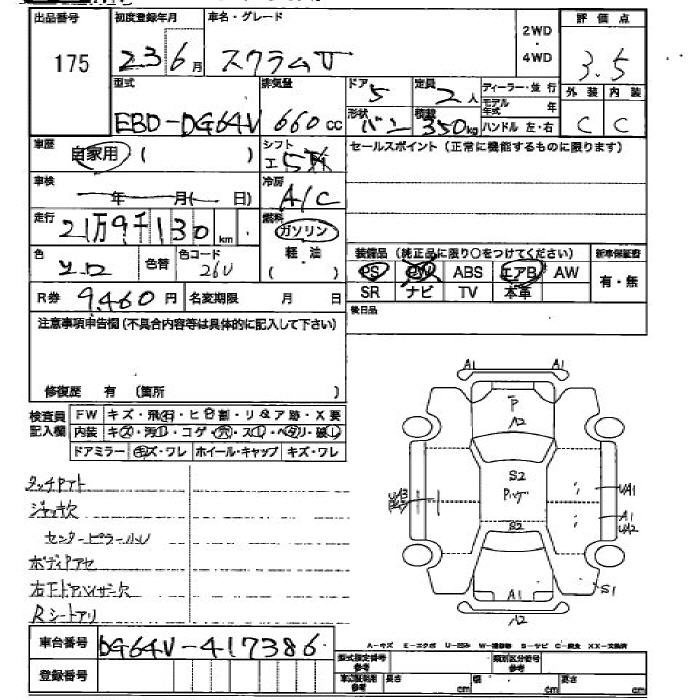 出品番号 初度登録年月 車名・グレード 評価点
175 23 6月 スクラムV 2WD・4WD 3.5
型式 排気量 ドア 5 定員 2人 ディーラー・並行 外装 内装
EBD-DG64V 660cc 形状 バン 積載 350kg モデル年式 年 ハンドル 左・右 C C
車歴 自家用 ( ) シフト セールスポイント (正常に機能するものに限ります)
車検 年 月( 日) 冷房 A/C
走行 21万9千130km 燃料 ガソリン
軽油
( )
色 シロ 色替 色コード 26U 装備品 (純正品に限り○をつけてください) 新車保証書
PS PW ABS エアB AW 有・無
R券 9,460円 名変期限 月 日 SR ナビ TV 本革
注意事項申告欄(不具合内容等は具体的に記入して下さい) 後日品
修復歴 有 (箇所 )
検査員記入欄 FW キズ・飛石・ヒビ割・リペア跡・X要
内装 キズ・汚レ・コゲ・穴・スレ・ヘタリ・破レ
ドアミラー キズ・ワレ ホイール・キャップ キズ・ワレ
A1 A1
A2
S2
UA3 UA1
A1
UA2
S2
A1 S1
A2
タッチアト
ジャッキ欠
センターピラー小U
ボディアセ
右下ドアバイザー欠
Rシートアリ
A-キズ E-エクボ U-凹み W-補修跡 S-サビ C-腐食 XX-交換済
車台番号 DG64V-417386
型式指定番号 参考 類別区分番号 参考
登録番号 長さ cm 幅 cm 高さ cm